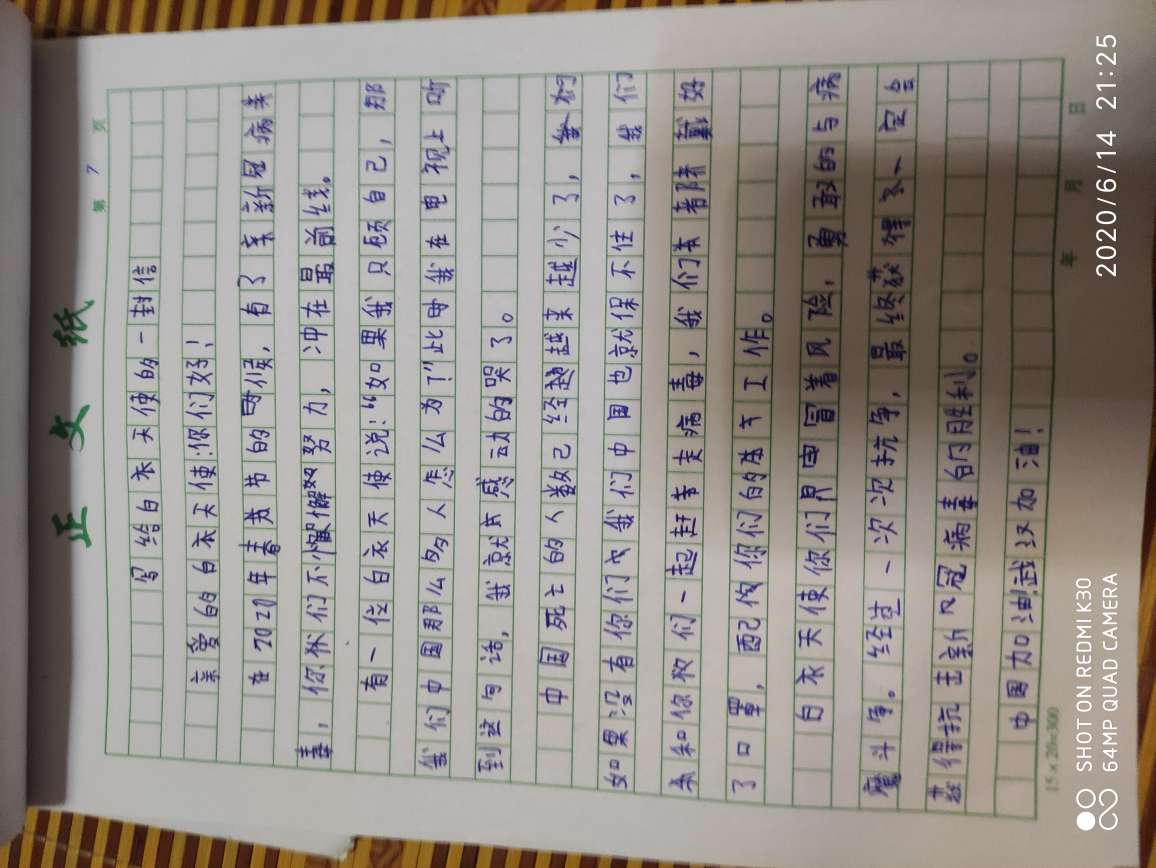 正文纸
第 7 页
写给白衣天使的一封信
亲爱的白衣天使:你们好!
在2020年春节的时候,有了新冠病
毒,你们不懈努力,冲在最前线。
有一位白衣天使说:“如果我只顾自己,那
我们中国那么多人怎么办了!”此时我在电视上听
到这句话,我就感动的哭了。
中国死亡的人数已经越来越少了,
如果没有你们我们中国也就保不住了,我们
和你们一起赶走病毒,我们都戴好
了口罩,配你们的工作。
白衣天使你们冒着风险,勇敢的与病
魔斗争。经过一次次抗争,最终获得了一定
获得抗击新冠病毒的胜利。
中国加油武汉加油!
15×20=300
年 月 日
SHOT ON REDMI K30
64MP QUAD CAMERA
2020/6/14 21:25